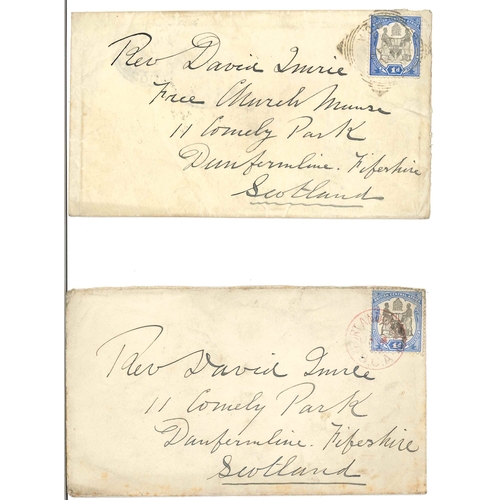 Rev David Imrie
Free Church Manse
11 Comely Park
Dunfermline. Fifeshire
Scotland
1d
Rev David Imrie
11 Comely Park
Dunfermline. Fifeshire
Scotland
B.C.A.
1d